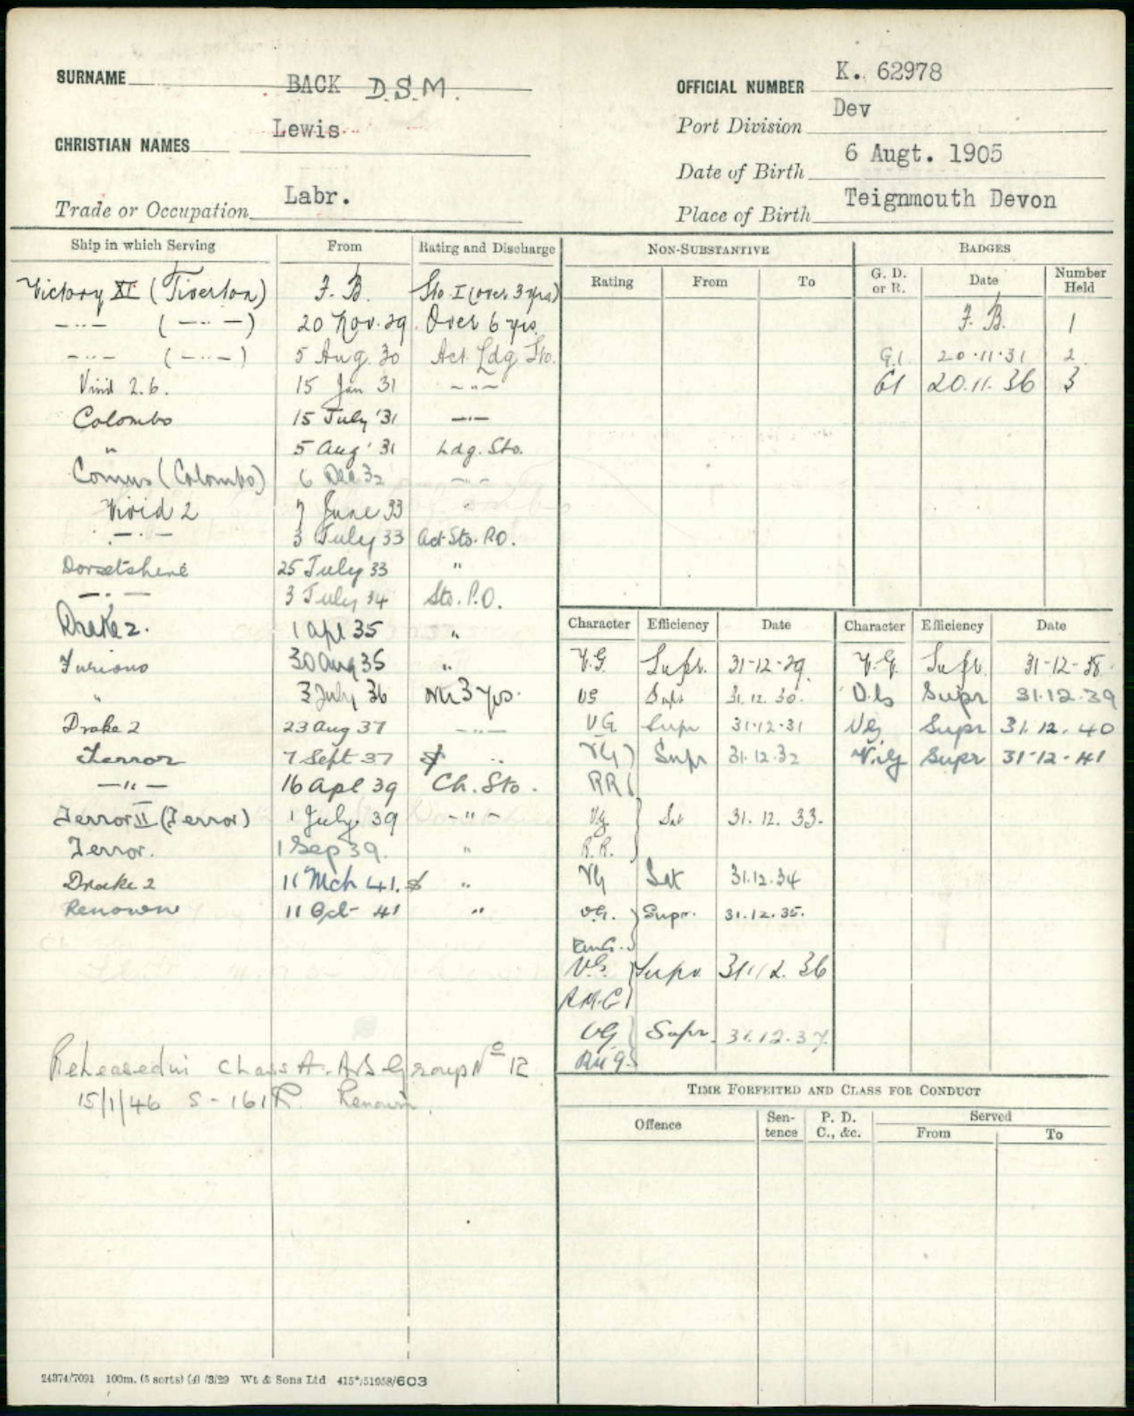 SURNAME BACK D.S.M.
CHRISTIAN NAMES Lewis
Trade or Occupation Labr.
OFFICIAL NUMBER K. 62978
Port Division Dev
Date of Birth 6 Augt. 1905
Place of Birth Teignmouth Devon
Ship in which Serving From Rating and Discharge
Victory XI (Tiverton) F.B. Sto. I (over 3 yrs)
-..- (-..-) 20 Nov. 29 Over 6 yrs
-..- (-..-) 5 Aug. 30 Act. Ldg Sto.
Vivid 2.6. 15 Jan 31 -..-
Colombo 15 July '31 -..-
" 5 Aug '31 Ldg. Sto.
Comus (Colombo) 6 Dec 32 -..-
Vivid 2 7 June 33 "
-..- 3 July 33 Act. Sto. P.O.
Dorsetshire 25 July 33 "
-..- 3 July 34 Sto. P.O.
Drake 2. 1 Apl 35 "
Furious 30 Aug 35 "
" 3 July 36 over 3 yrs.
Drake 2 23 Aug 37 -..-
Terror 7 Sept 37 "
-"- 16 Apl 39 Ch. Sto.
Terror II (Terror) 1 July 39 -"-
Terror. 1 Sep 39. "
Drake 2 11 Mch 41. "
Renown 11 Oct 41 "
Released in Class A. A/S Group No 12
15/1/46 S-161R Renown.
NON-SUBSTANTIVE
Rating From To
BADGES
G. D. or R. Date Number Held
F.B. 1
G.1 20.11.31 2
G1 20.11.36 3
Character Efficiency Date Character Efficiency Date
V.G Supr. 31-12-29 V.G. Supr. 31-12-38.
VG Supr 31.12.30. V.G Supr 31.12.39
V.G. Supr 31.12.31 VG Supr 31.12.40
VG Supr 31.12.32 V.G Supr 31-12-41
RR
V.G. Sat 31.12.33.
R.R.
VG Sat 31.12.34
V.G. Supr. 31.12.35.
V.G. Supr 31.12.36
VG Supr. 31.12.37.
TIME FORFEITED AND CLASS FOR CONDUCT
Offence Sentence P. D. C., &c. Served
From To
24374/7091 100m. (5 sorts) /3/29 Wt & Sons Ltd 415*/51958/603